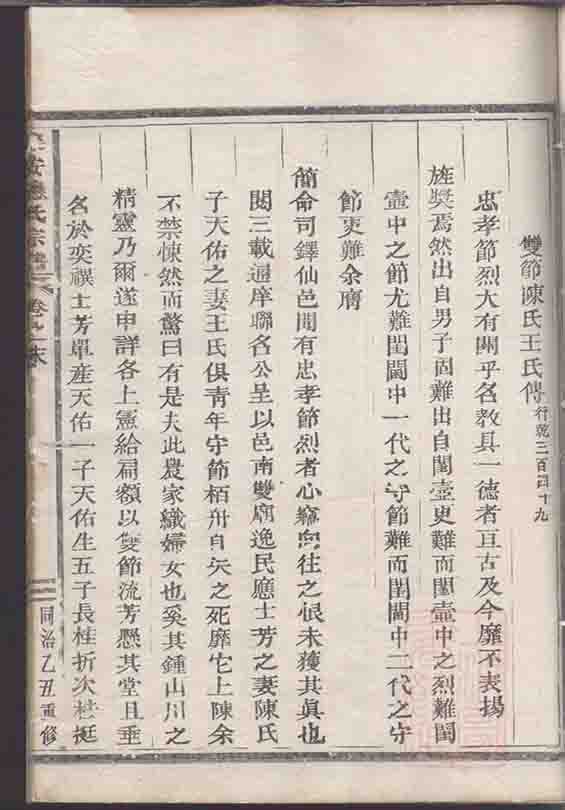 雙節陳氏王氏傳行乾三百四十九
忠孝節烈大有關乎名教具一德者亘古及今靡不表揚
旌奬焉然出自男子固難出自閨壼更難而閨壼中之烈難閨
壼中之節尤難閨閫中一代之守節難而閨閫中二代之守
節更難余膺
簡命司鐸仙邑聞有忠孝節烈者心竊向往之恨未獲其眞也
閱三載適庠聯名公呈以邑南雙廟逸民應士芳之妻陳氏
子天佑之妻王氏俱青年守節栢舟自矢之死靡它上陳余
不禁悚然而驚曰有是夫此農家織婦女也奚其鍾山川之
精靈乃爾遂申詳各上憲給扁額以雙節流芳懸其堂且垂
名於奕禩士芳單產天佑一子天佑生五子長桂折次桂挺
安應氏宗譜
卷之末
同治乙丑重修